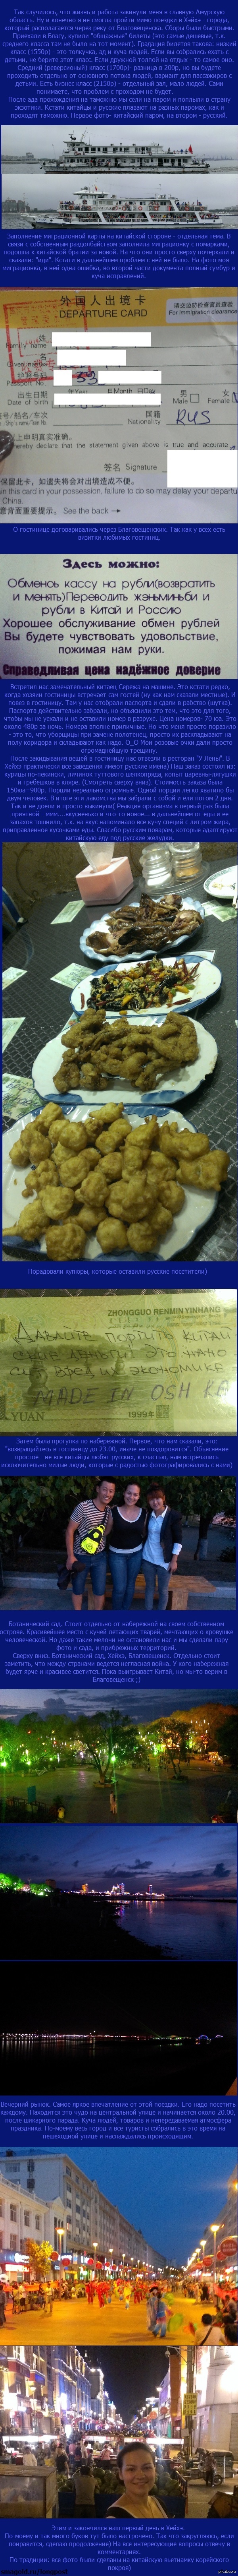 Так случилось, что жизнь и работа закинули меня в славную Амурскую
область. Ну и конечно я не смогла пройти мимо поездки в Хэйхэ - города,
который располагается через реку от Благовещенска. Сборы были быстрыми.
Приехали в Благу, купили "общажные" билеты (это самые дешевые, т.к.
среднего класса там не было на тот момент). Градация билетов такова: низкий
класс (1550р) - это толкучка, ад и куча людей. Если вы собрались ехать с
детьми, не берите этот класс. Если дружной толпой на отдых - то самое оно.
Средний (реверсионный) класс (1700р)- разница в 200р, но вы будете
проходить отдельно от основного потока людей, вариант для пассажиров с
детьми. Есть бизнес класс (2150р) - отдельный зал, мало людей. Сами
понимаете, что проблем с проходом не будет.
После ада прохождения на таможню мы сели на паром и поплыли в страну
экзотики. Кстати китайцы и русские плавают на разных паромах, как и
проходят таможню. Первое фото- китайский паром, на втором - русский.
Заполнение миграционной карты на китайской стороне - отдельная тема. В
связи с собственным раздолбайством заполнила миграционку с помарками,
подошла к китайской братии за новой. На что они просто сверху почеркали и
сказали: "иди". Кстати в дальнейшем проблем с ней не было. На фото моя
миграционка, в ней одна ошибка, во второй части документа полный сумбур и
куча исправлений.
外国人出境卡
DEPARTURE CARD
请交边防检查官员查验
For Immigration clearance
姓
Family name
名
Given names
护照号码
Passport No.
出生日期
Date of birth
年Year 月Month 日Day
男
Male
女
Female
航班号/船名/车次
国籍
Nationality
RUS
以上申明真实准确。
hereby declare that the statement given above is true and accurate
签名 Signature
保留此卡，如遗失将会对出境造成不便。
this card in your possession, failure to do so may delay your departure
China.
О гостинице договаривались через Благовещенских. Так как у всех есть
визитки любимых гостениц.
Здесь можно:
Обменоь кассу на рубли(возвратить
и менять)Переводить жэньминьби и
рубли в Китай и Россию
Хорошее обслуживание обмен рублей
Вы будете чувствовать удовольствие,
пожимая нам руки.
Справедливая цена надёжное доверие
Встретил нас замечательный китаец Сережа на машине. Это кстати редко,
когда хозяин гостиницы встречает сам гостей (ну как нам сказали местные). И
повез в гостиницу. Там у нас отобрали паспорта и сдали в рабство (шутка).
Паспорта действительно забрали, но объяснили это тем, что это для того,
чтобы мы не уехали и не оставили номер в разрухе. Цена номеров- 70 юа. Это
около 480р за ночь. Номера вполне приличные. Но что меня просто поразило
- это то, что уборщицы при замене полотенец, просто их раскладывают на
полу коридора и складывают как надо. О_О Мои розовые очки дали просто
огромаднейшую трещину.
После закидывания вещей в гостиницу нас отвезли в ресторан "У Лены". В
Хейхэ практически все заведения имеют русские имена) Наш заказ состоял из:
курицы по-пекински, личинок тутового шелкопряда, лапши/ царевны-лягушки
и гребешков в кляре. (Смотреть сверху вниз). Стоимость заказа была
150юа=900р. Порции нереально огромные. Одной порции легко хватило бы
двум человек. В итоге эти лакомства мы забрали с собой и ели потом 2 дня.
Так и не доели и просто выкинули( Реакция организма в первый раз была
приятной - ммм....вкусненько и что-то новое... в дальнейшем от еды и ее
запахов тошнило, т.к. на вкус напоминало все кучу специй с литром жира,
приправленное кусочками еды. Спасибо русским поварам, которые адаптируют
китайскую еду под русские желудки.
Порадовали купюры, которые оставили русские посетители)
ZHONGGUO RENMIN YINHANG
ДАВАЙТЕ ПОРТИТЬ КИТАЙ
MADE IN OSH KA
YUAN
1999年
Затем была прогулка по набережной. Первое, что нам сказали, это:
"возвращайтесь в гостиницу до 23.00, иначе не поздоровится". Объяснение
простое - не все китайцы любят русских, к счастью, нам встречались
исключительно милые люди, которые с радостью фотографировались с нами)
Ботанический сад. Стоит отдельно от набережной на своем собственном
острове. Красивейшее место с кучей летающих тварей, мечтающих о кровушке
человеческой. Но даже такие мелочи не остановили нас и мы сделали пару
фото и сада, и прибрежных территорий.
Сверху вниз: Ботанический сад, Хейхэ, Благовещенск. Отдельно стоит
заметить, что между странами ведется негласная война. У кого набережная
будет ярче и красивее светится. Пока выигрывает Китай, но мы-то верим в
Благовещенск ;)
Вечерний рынок. Самое яркое впечатление от этой поездки. Его надо посетить
каждому. Находится это чудо на центральной улице и начинается около 20.00,
после шикарного парада. Куча людей, товаров и непередаваемая атмосфера
праздника. По-моему весь город и все туристы собрались в это время на
пешеходной улице и наслаждались происходящим.
Этим и закончился наш первый день в Хейхэ.
По-моему и так много буков тут было настрочено. Так что закругляюсь, если
понравится, сделаю продолжение) На все интересующие вопросы отвечу в
комментариях.
По традиции: все фото были сделаны на китайскую вытномку корейского
покроя)
pikabu.ru